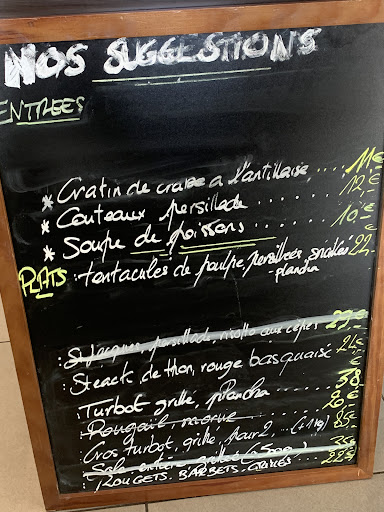 NOS SUGGESTIONS
ENTREES
* Gratin de crabe a l'antillaise .... 11€
* Couteaux persillade ...... 12,€
* Soupe de poissons ...... 10,€
PLATS: tentacules de poulpe, persillees, snakés 22,
- plancha
: St Jacques, persillade, risotto aux cèpes 23,€
: Steack de thon, rouge basquaise 24,€
: Turbot grille, plancha .... 38€
: Rougail, morue ........ 20€
: Gros turbot, grille, pour 2, (1kg) 85€
: Sole entière grillée (500g) 35€
: ROUGETS, BARBETS, 22€